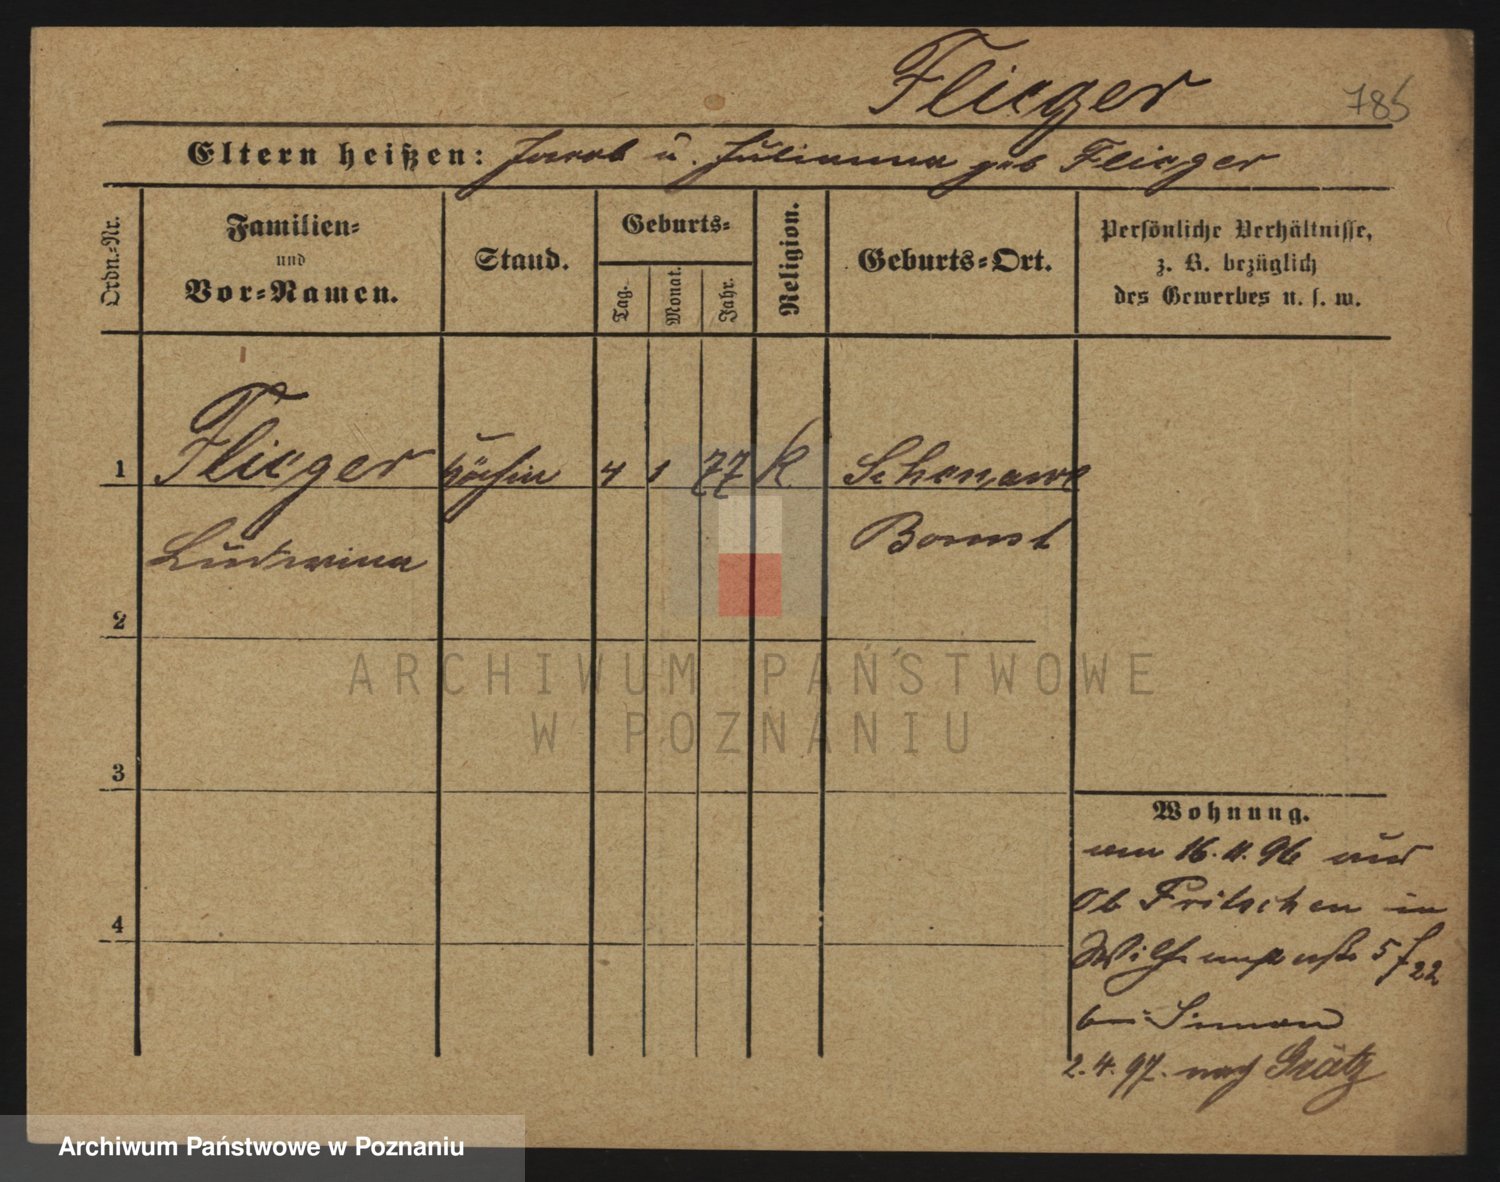 Flieger
785
Eltern heißen: Jacob u. Julianna geb Flieger
Ordn.-Nr.
Familien-
und
Vor-Namen.
Stand.
Geburts-
Tag.
Monat.
Jahr.
Religion.
Geburts-Ort.
Persönliche Verhältnisse,
z. B. bezüglich
des Gewerbes u. s. w.
1 Flieger Köchin 4 1 77 k
Ludwina Bomst
2
3
4
Wohnung.
am 16.11.96 aus
Fritschen in
5/22
bei Simon
2.4.97. nach Grätz
ARCHIWUM PAŃSTWOWE
W POZNANIU
Archiwum Państwowe w Poznaniu